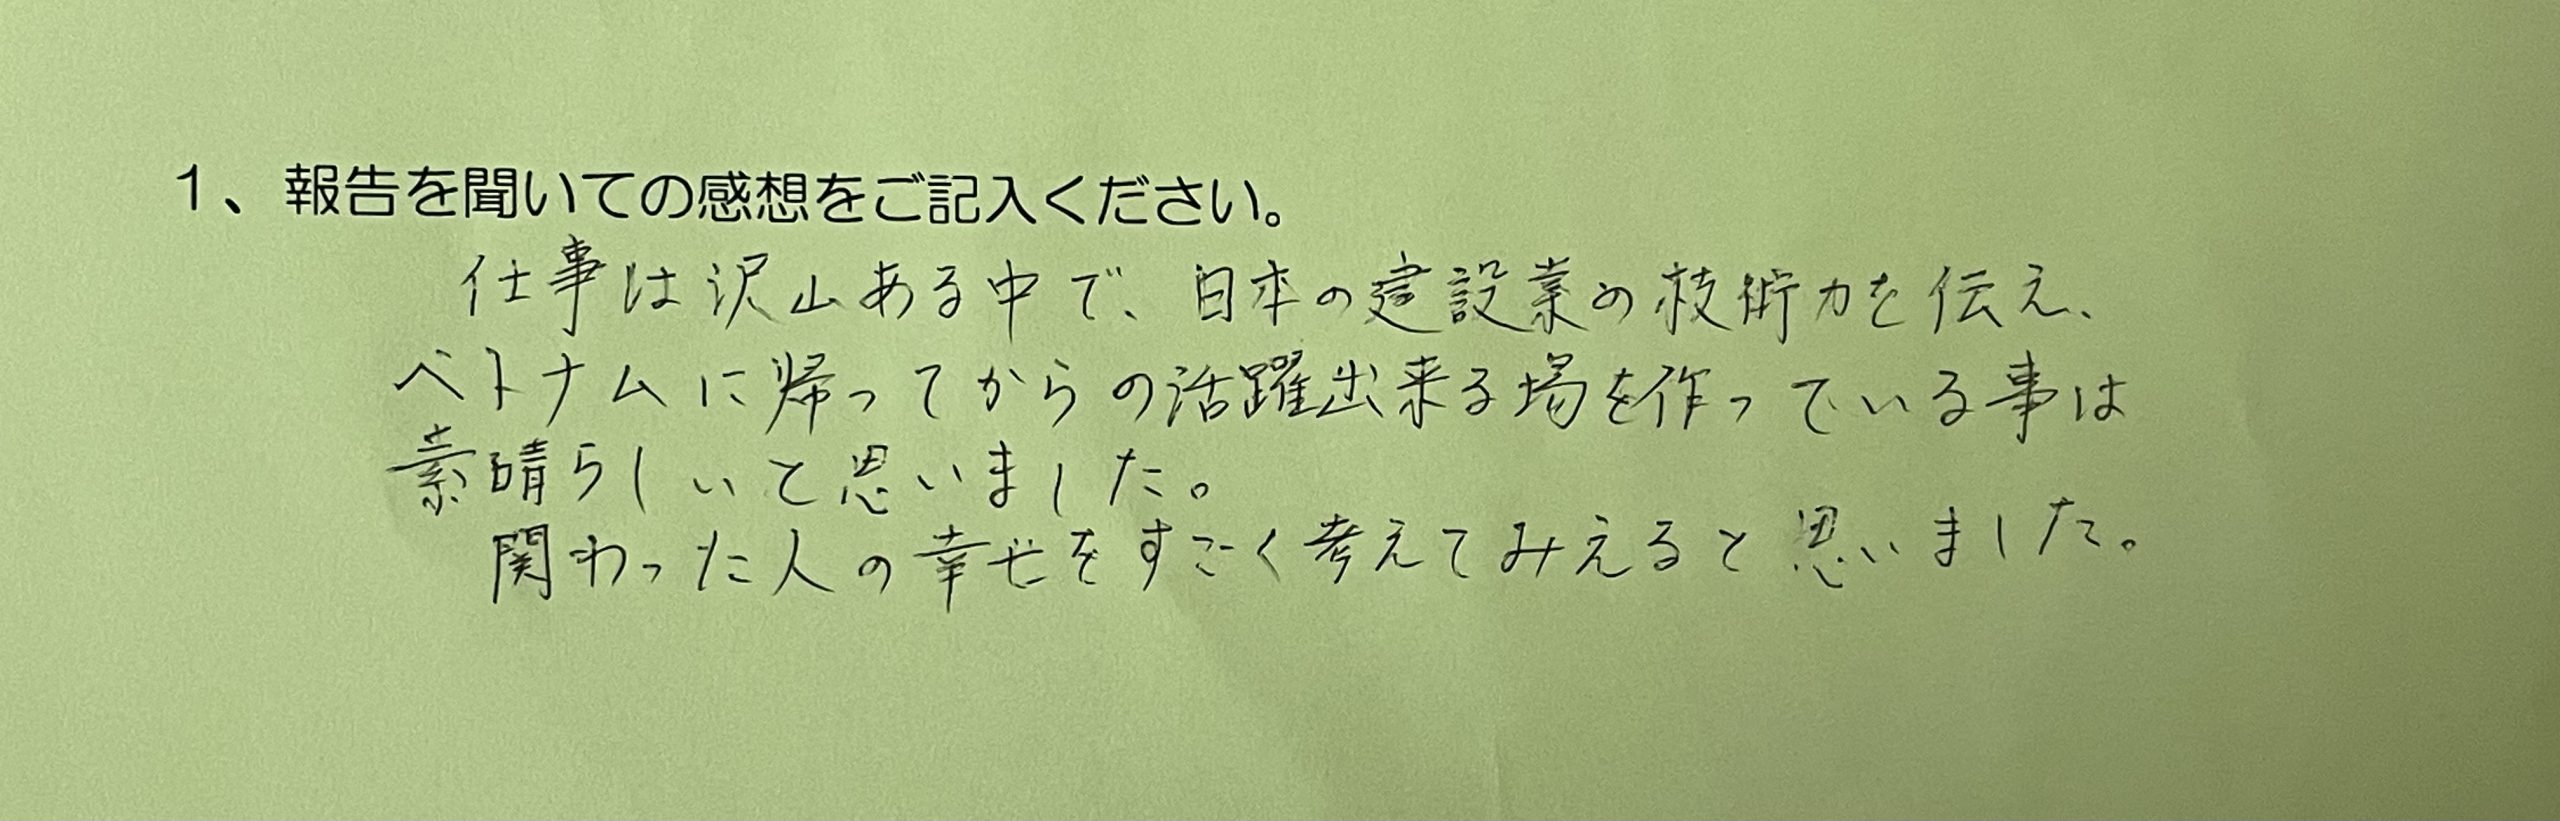 1、報告を聞いての感想をご記入ください。
仕事は沢山ある中で、日本の建設業の技術力を伝え、
ベトナムに帰ってからの活躍出来る場を作っている事は
素晴らしいと思いました。
関わった人の幸せをすごく考えてみえると思いました。